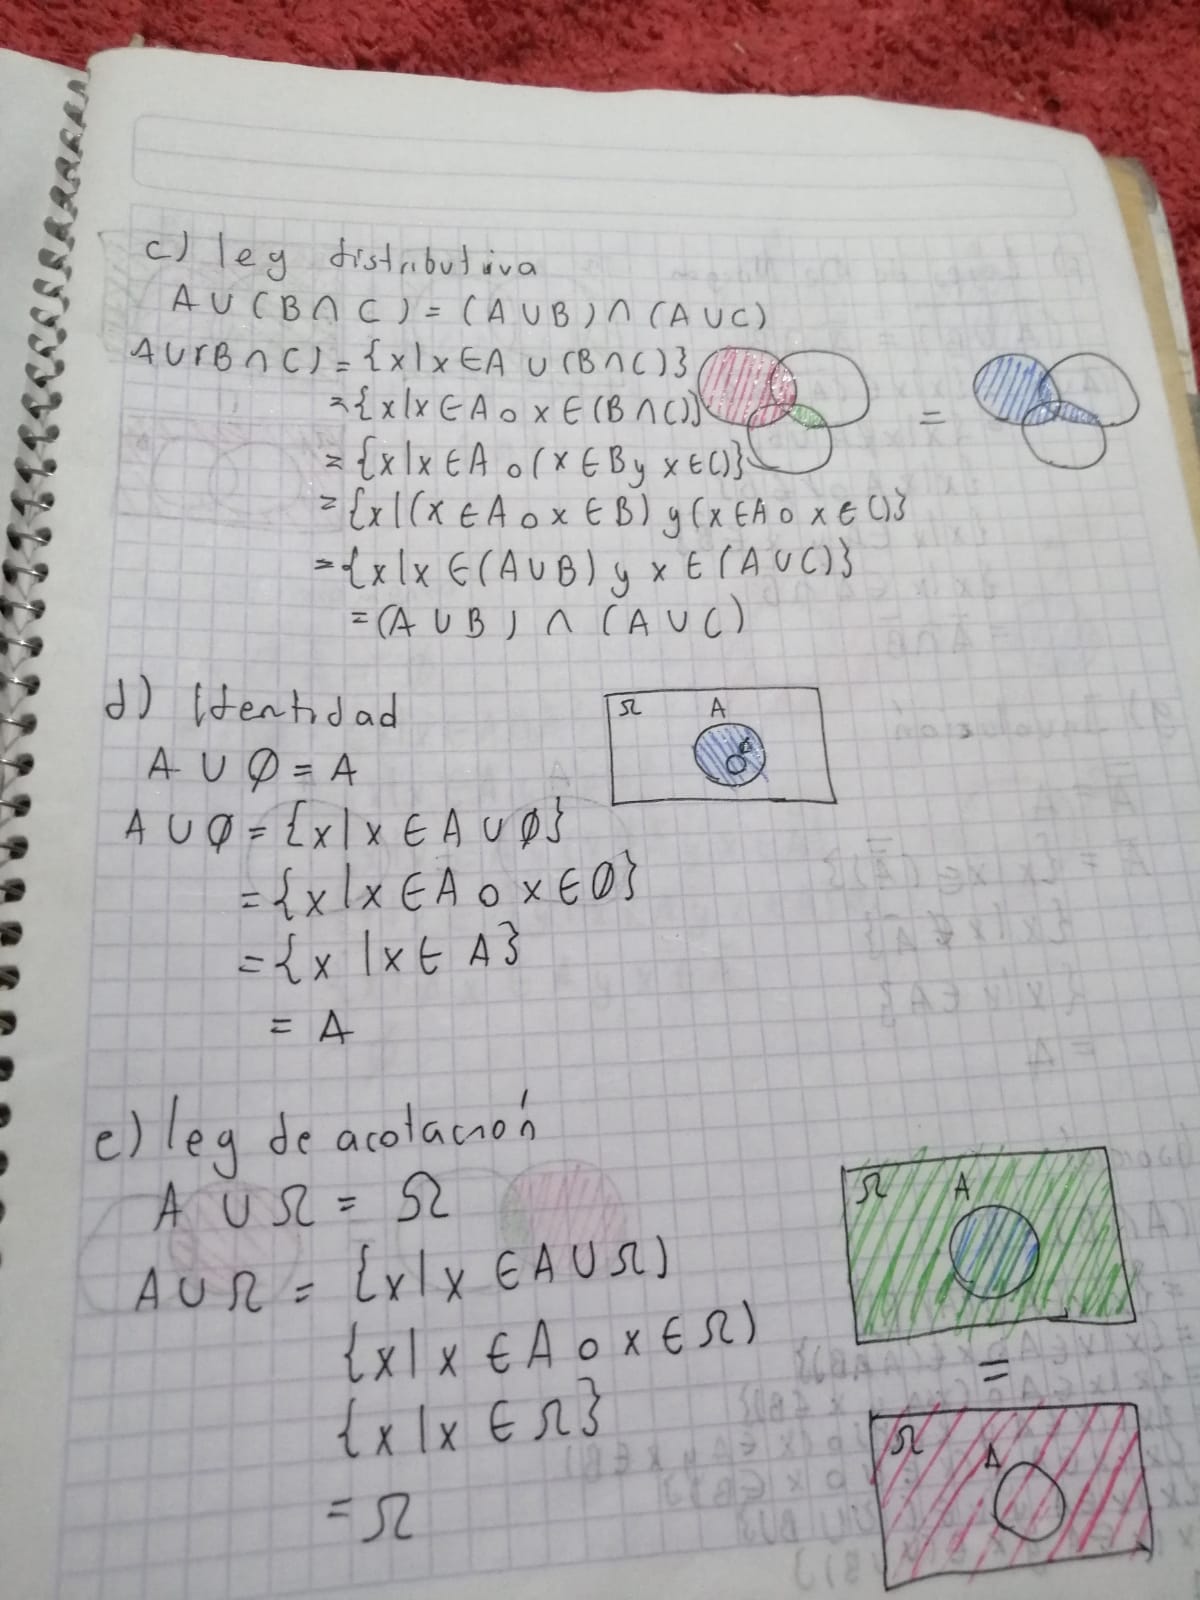 c) ley distributiva
A ∪ (B ∩ C) = (A ∪ B) ∩ (A ∪ C)
A ∪ (B ∩ C) = {x | x ∈ A ∪ (B ∩ C)}
= {x | x ∈ A o x ∈ (B ∩ C)}
=
= {x | x ∈ A o (x ∈ B y x ∈ C)}
= {x | (x ∈ A o x ∈ B) y (x ∈ A o x ∈ C)}
= {x | x ∈ (A ∪ B) y x ∈ (A ∪ C)}
= (A ∪ B) ∩ (A ∪ C)
d) Identidad
Ω A
∅
A ∪ ∅ = A
A ∪ ∅ = {x | x ∈ A ∪ ∅}
= {x | x ∈ A o x ∈ ∅}
= {x | x ∈ A}
= A
e) ley de acotación
A ∪ Ω = Ω
Ω A
A ∪ Ω = {x | x ∈ A ∪ Ω)
{x | x ∈ A o x ∈ Ω)
=
{x | x ∈ Ω}
Ω A
= Ω